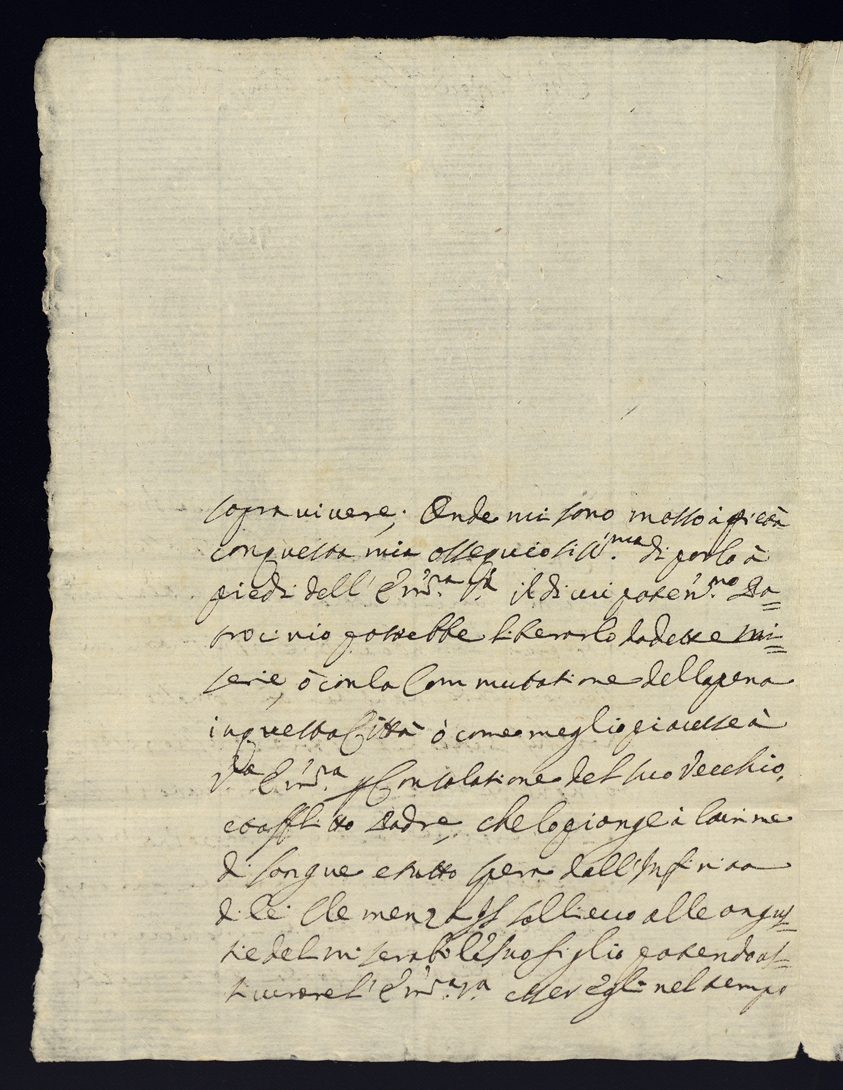 sopravivere; Onde mi sono mosso à pietà
con questa mia ossequiosiss.ma di porlo à
piedi dell' Em.za V.ra il di cui poten.mo Pa=
trocinio potrebbe liberarlo da dette mi=
serie, ò con la Commutatione della pena
in questa Città ò come meglio piacesse à
V.ra Em.za p Consolatione del suo Vecchio,
et afflitto Padre, che lo piange à lacrime
di sangue e tutto spera dall' Infinita
di lei Clemenza p sollievo alle angus=
tie del miserabile suo figlio potendo as=
sicurare l' Em.za V.ra esser egli nel tempo